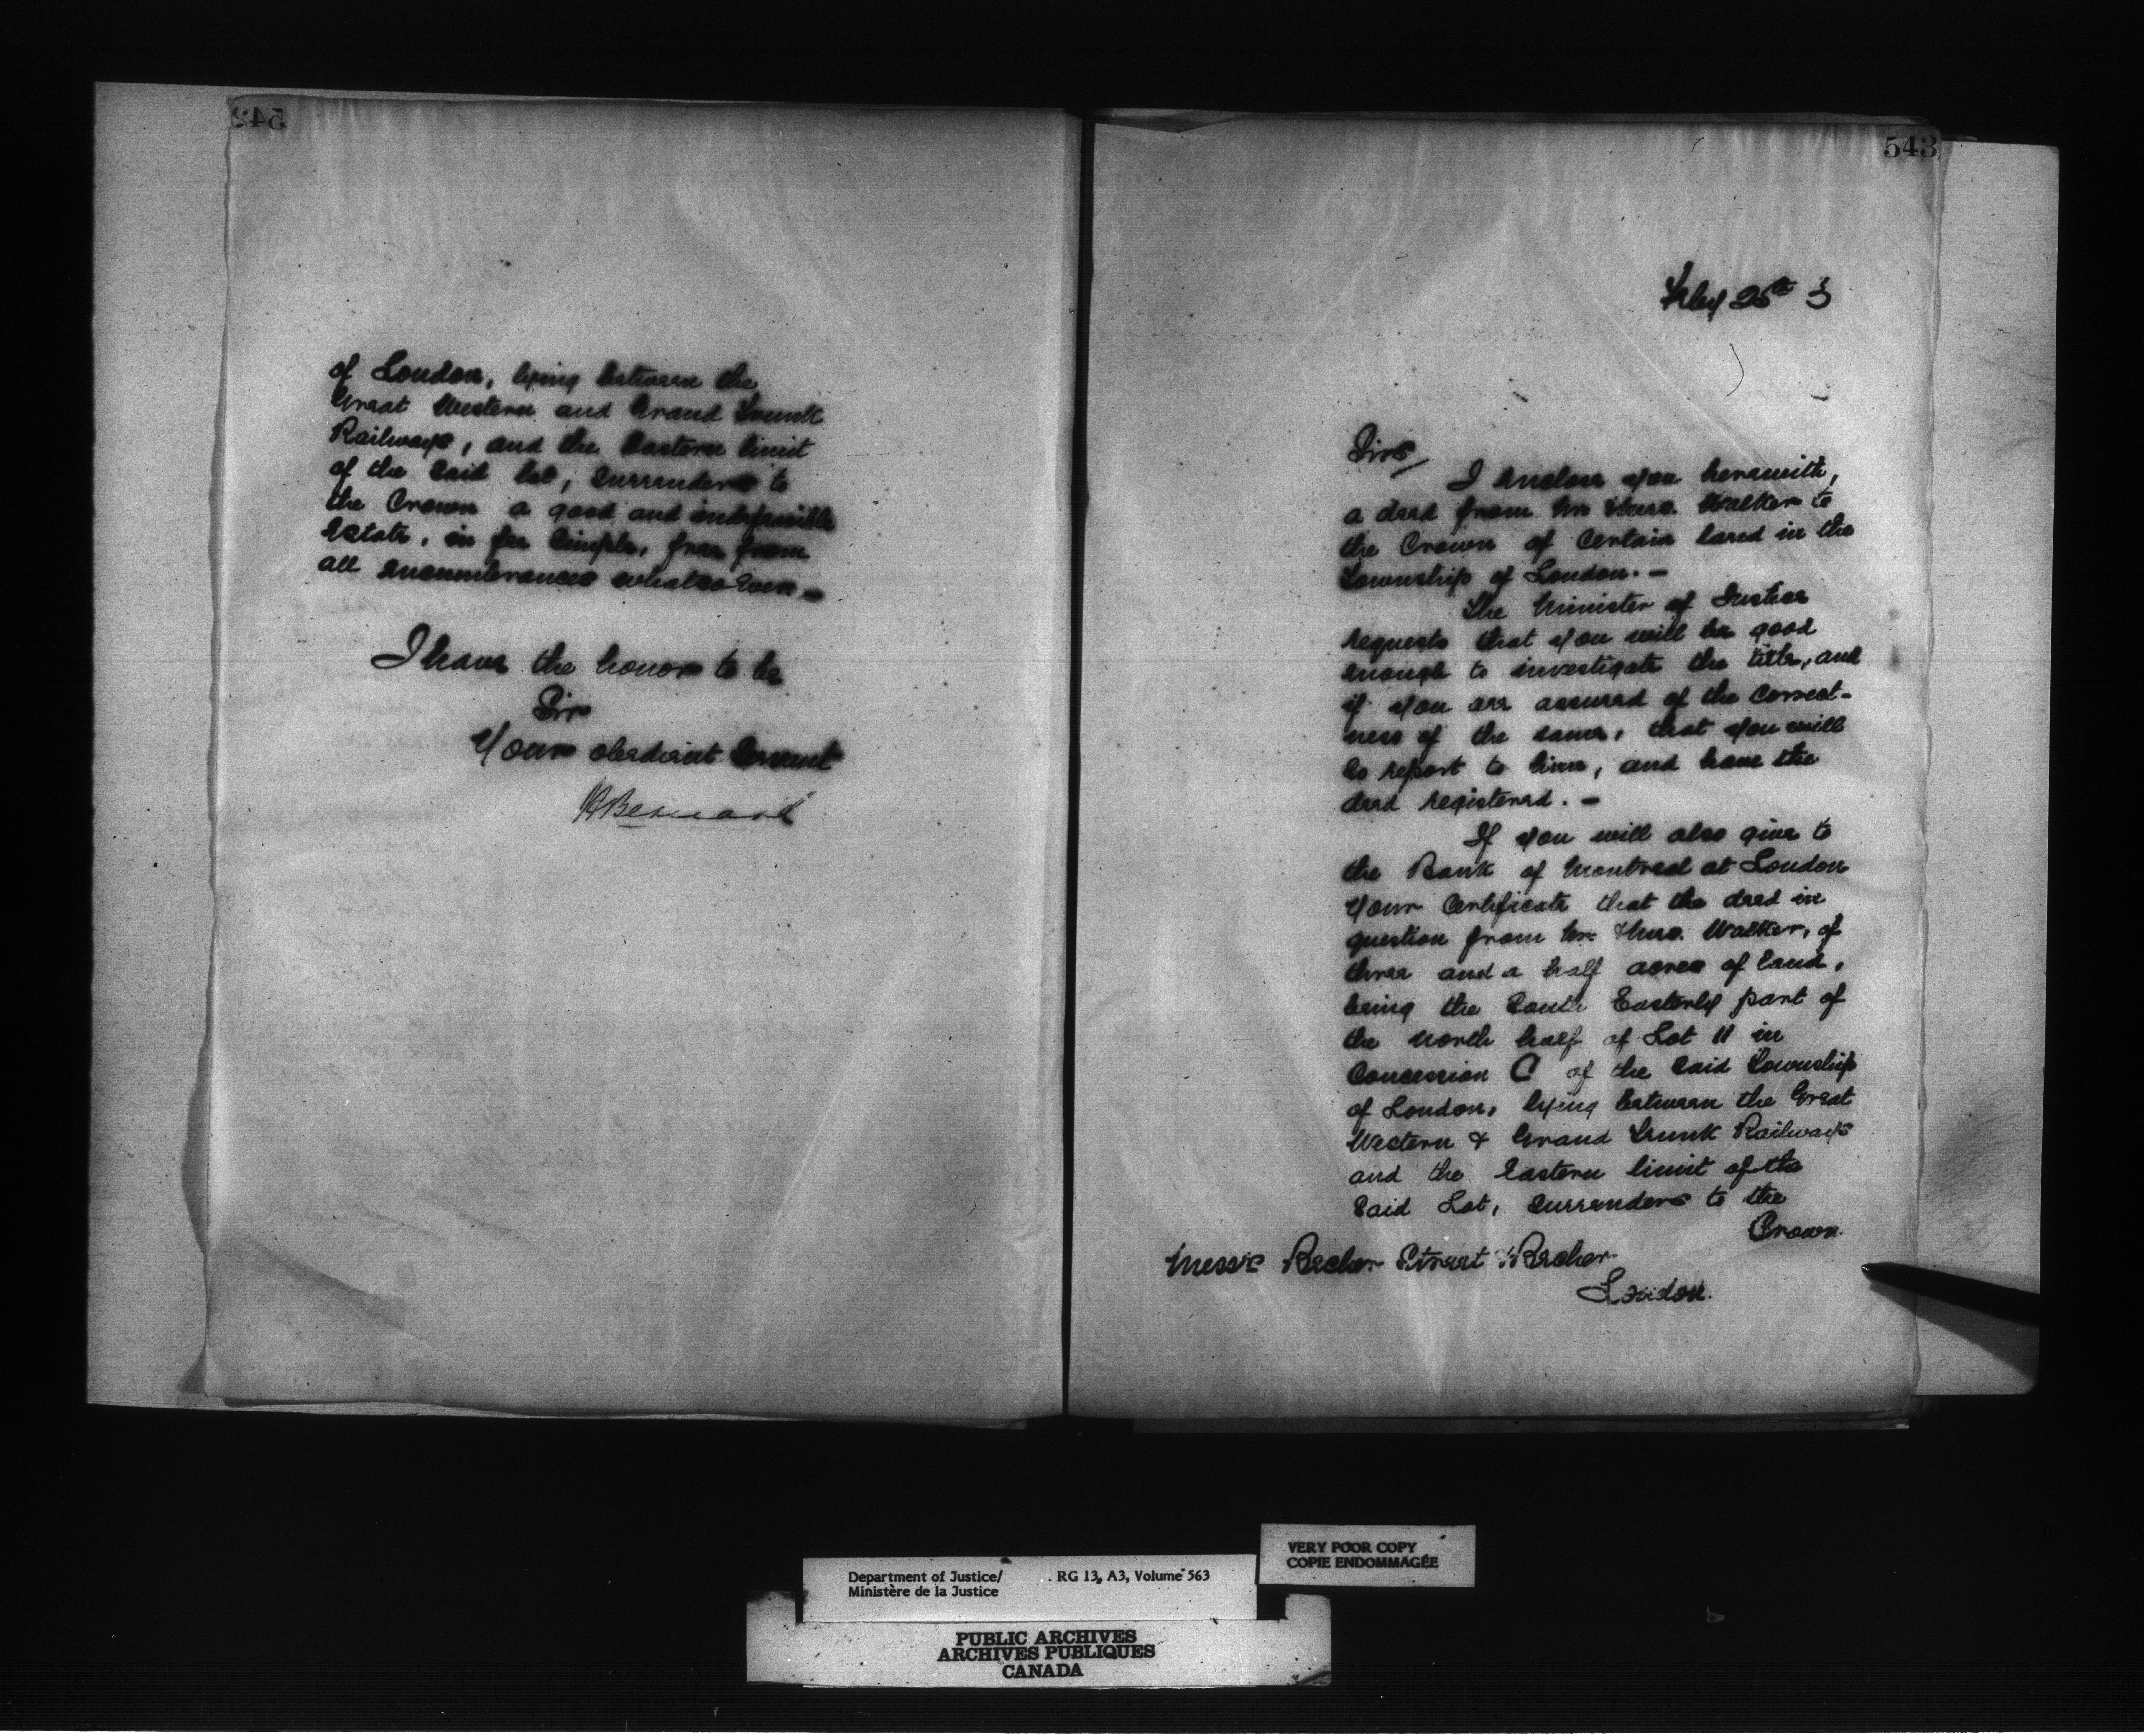 542
of London, lying between the
Great Western and Grand Trunk
Railways, and the Eastern limit
of the Said lot, surrenders to
the Crown a good and indefeasible
Estate, in fee Simple, free from
all encumbrances whatsoever. —
I have the honor to be
Sir
Your obedient Servant
H Bernard
543
Feby 25th 3
Sirs
I enclose you herewith,
a deed from Mr Thos. Walker to
the Crown of Certain land in the
Township of London. —
The Minister of Justice
requests that you will be good
enough to investigate the title, and
if you are assured of the correct-
ness of the same, that you will
so report to him, and have the
deed registered. —
If you will also give to
the Bank of Montreal at London
your Certificate that the deed in
question from Mr Thos. Walker, of
three and a half acres of land,
being the South Easterly part of
the north half of Lot 11 in
Concession C of the Said Township
of London, lying between the Great
Western & Grand Trunk Railways
and the Eastern limit of the
Said Lot, surrenders to the
Crown
Messrs Becher Street & Becher
London.
VERY POOR COPY
COPIE ENDOMMAGÉE
Department of Justice/ RG 13, A3, Volume 563
Ministère de la Justice
PUBLIC ARCHIVES
ARCHIVES PUBLIQUES
CANADA